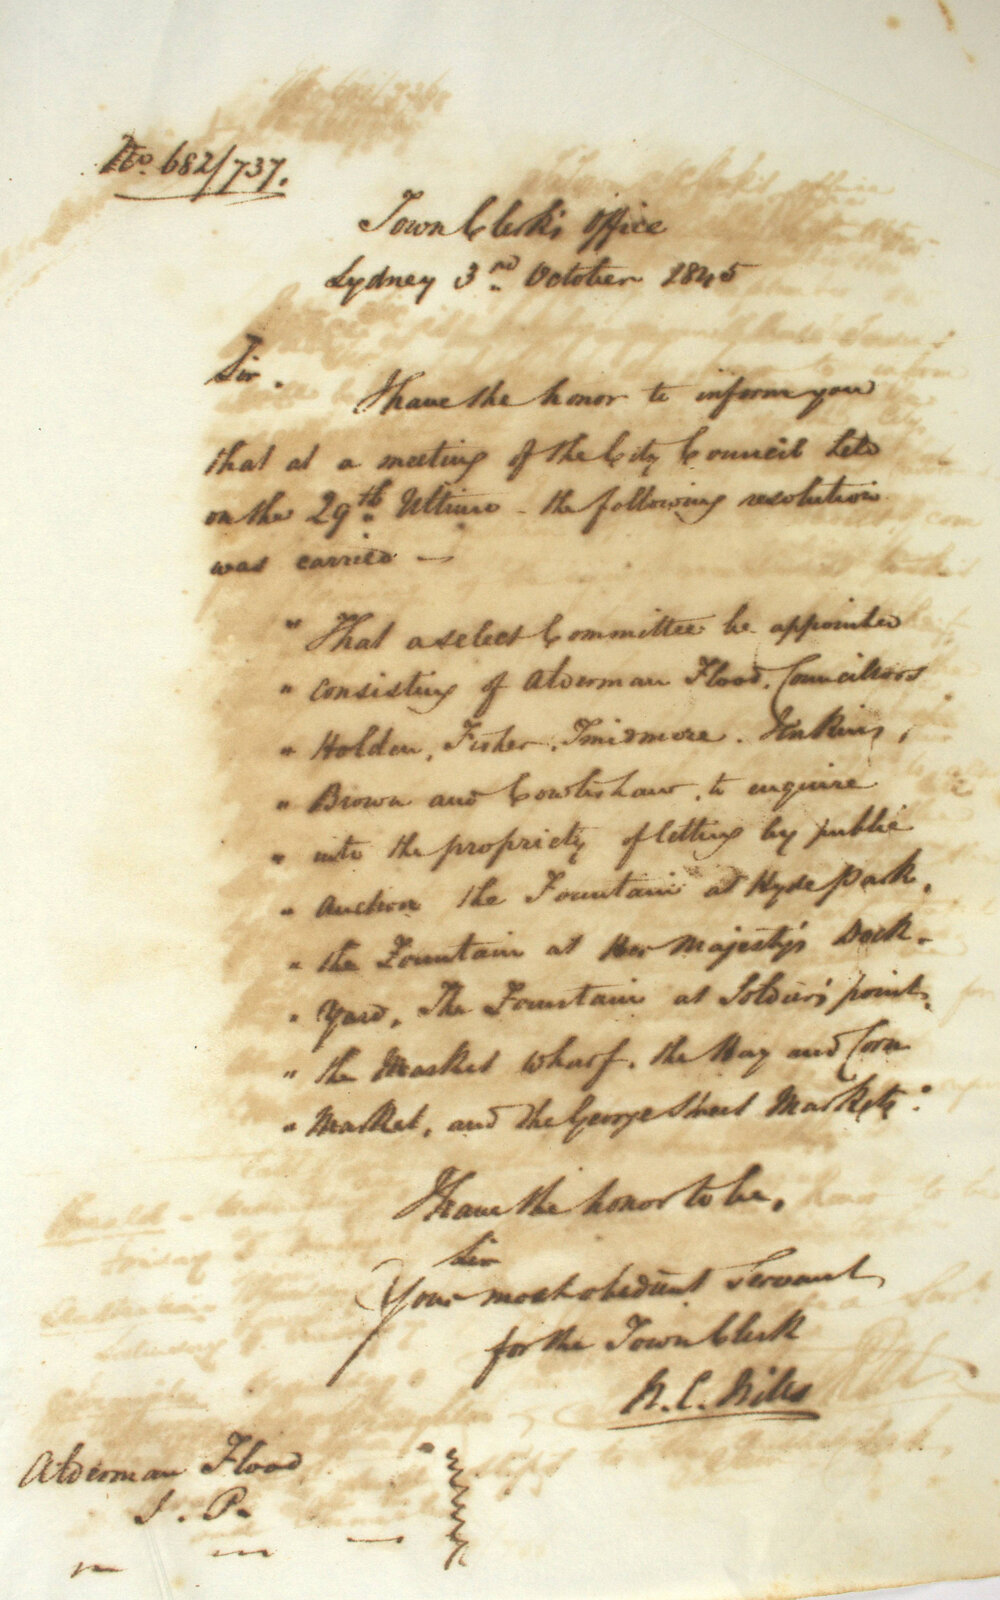 No. 682/737.
Town Clerk's Office
Sydney 3rd October 1845
Sir.
I have the honor to inform you
that at a meeting of the City Council held
on the 29th Ultimo - the following resolution
was carried —
" That a select Committee be appointed
" consisting of Alderman Flood, Councillors
" Holden, Fisher, Smidmore. Jenkins,
" Brown and Cowlishaw, to enquire
" into the propriety of letting by public
" Auction the Fountain at Hyde Park,
" the Fountain at Her Majesty's Dock-
" Yard, The Fountain at Soldier's point,
" the Market Wharf, the Hay and Corn
" Market, and the George Street Markets."
I have the honor to be,
Sir
Your most obedient Servant
for the Town Clerk
Alderman Flood
J. P.